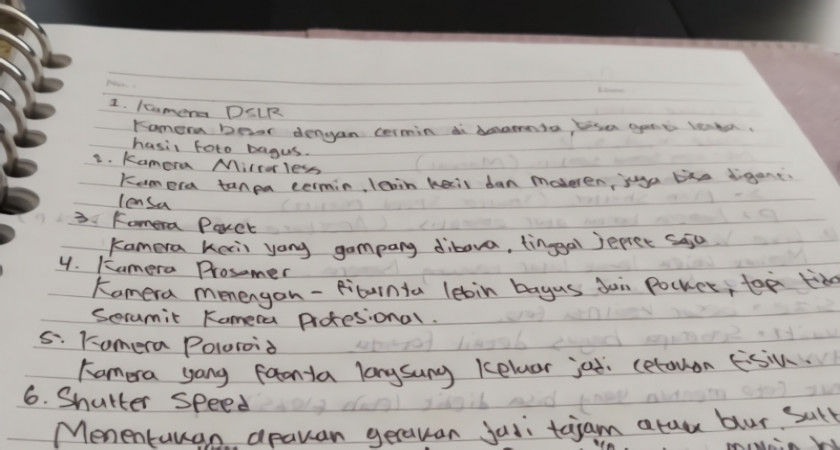 1. Kamera DSLR
Kamera besar dengan cermin di dalamnya, bisa ganti lensa.
hasil foto bagus.
2. Kamera Mirrorless
Kamera tanpa cermin, lebih kecil dan moderen, juga bisa diganti
lensa
3. Kamera Pocket
Kamera kecil yang gampang dibawa, tinggal jepret saja
4. Kamera Prosumer
Kamera menengah - fiturnya lebih bagus dari pocket, tapi
Serumit Kamera Profesional.
5. Kamera Polaroid
Kamera yang fotonya langsung keluar jadi cetakan fisik.
6. Shutter Speed
Menentukan apakah gerakan jadi tajam atau blur.